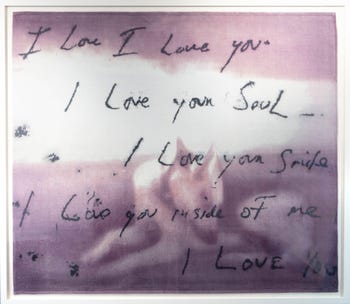 I Love I Love you.
I Love your SouL
I Love your Smile
I Love you inside of me
I LOVE You